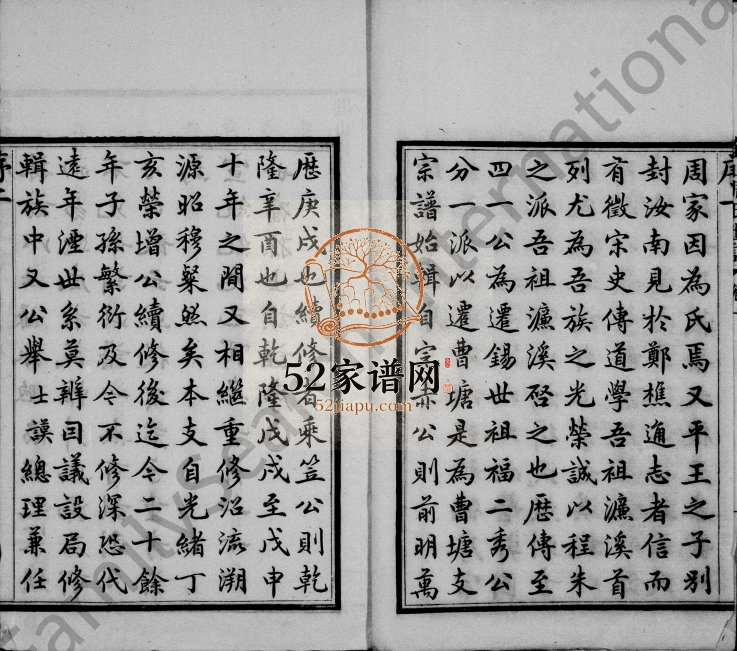 周家因為氏焉又平王之子別
封汝南見於鄭樵通志者信而
有徵宋史傳道學吾祖濂溪首
列尤為吾族之光榮誠以程朱
之派吾祖濂溪啓之也歷傳至
四一公為遷錫世祖福二秀公
分一派以遷曹塘是為曹塘支
宗譜始輯自宗亦公則前明萬
歷庚戌也續修者乘笠公則乾
隆辛酉也自乾隆戊戌至戊申
十年之間又相繼重修沿流溯
源昭穆粲然矣本支自光緒丁
亥榮增公續修後迄今二十餘
年子孫繁衍及今不修深恐代
遠年湮世系莫辦因議設局修
輯族中又公舉士謨總理兼任
序二
52家谱网
52jiapu.com